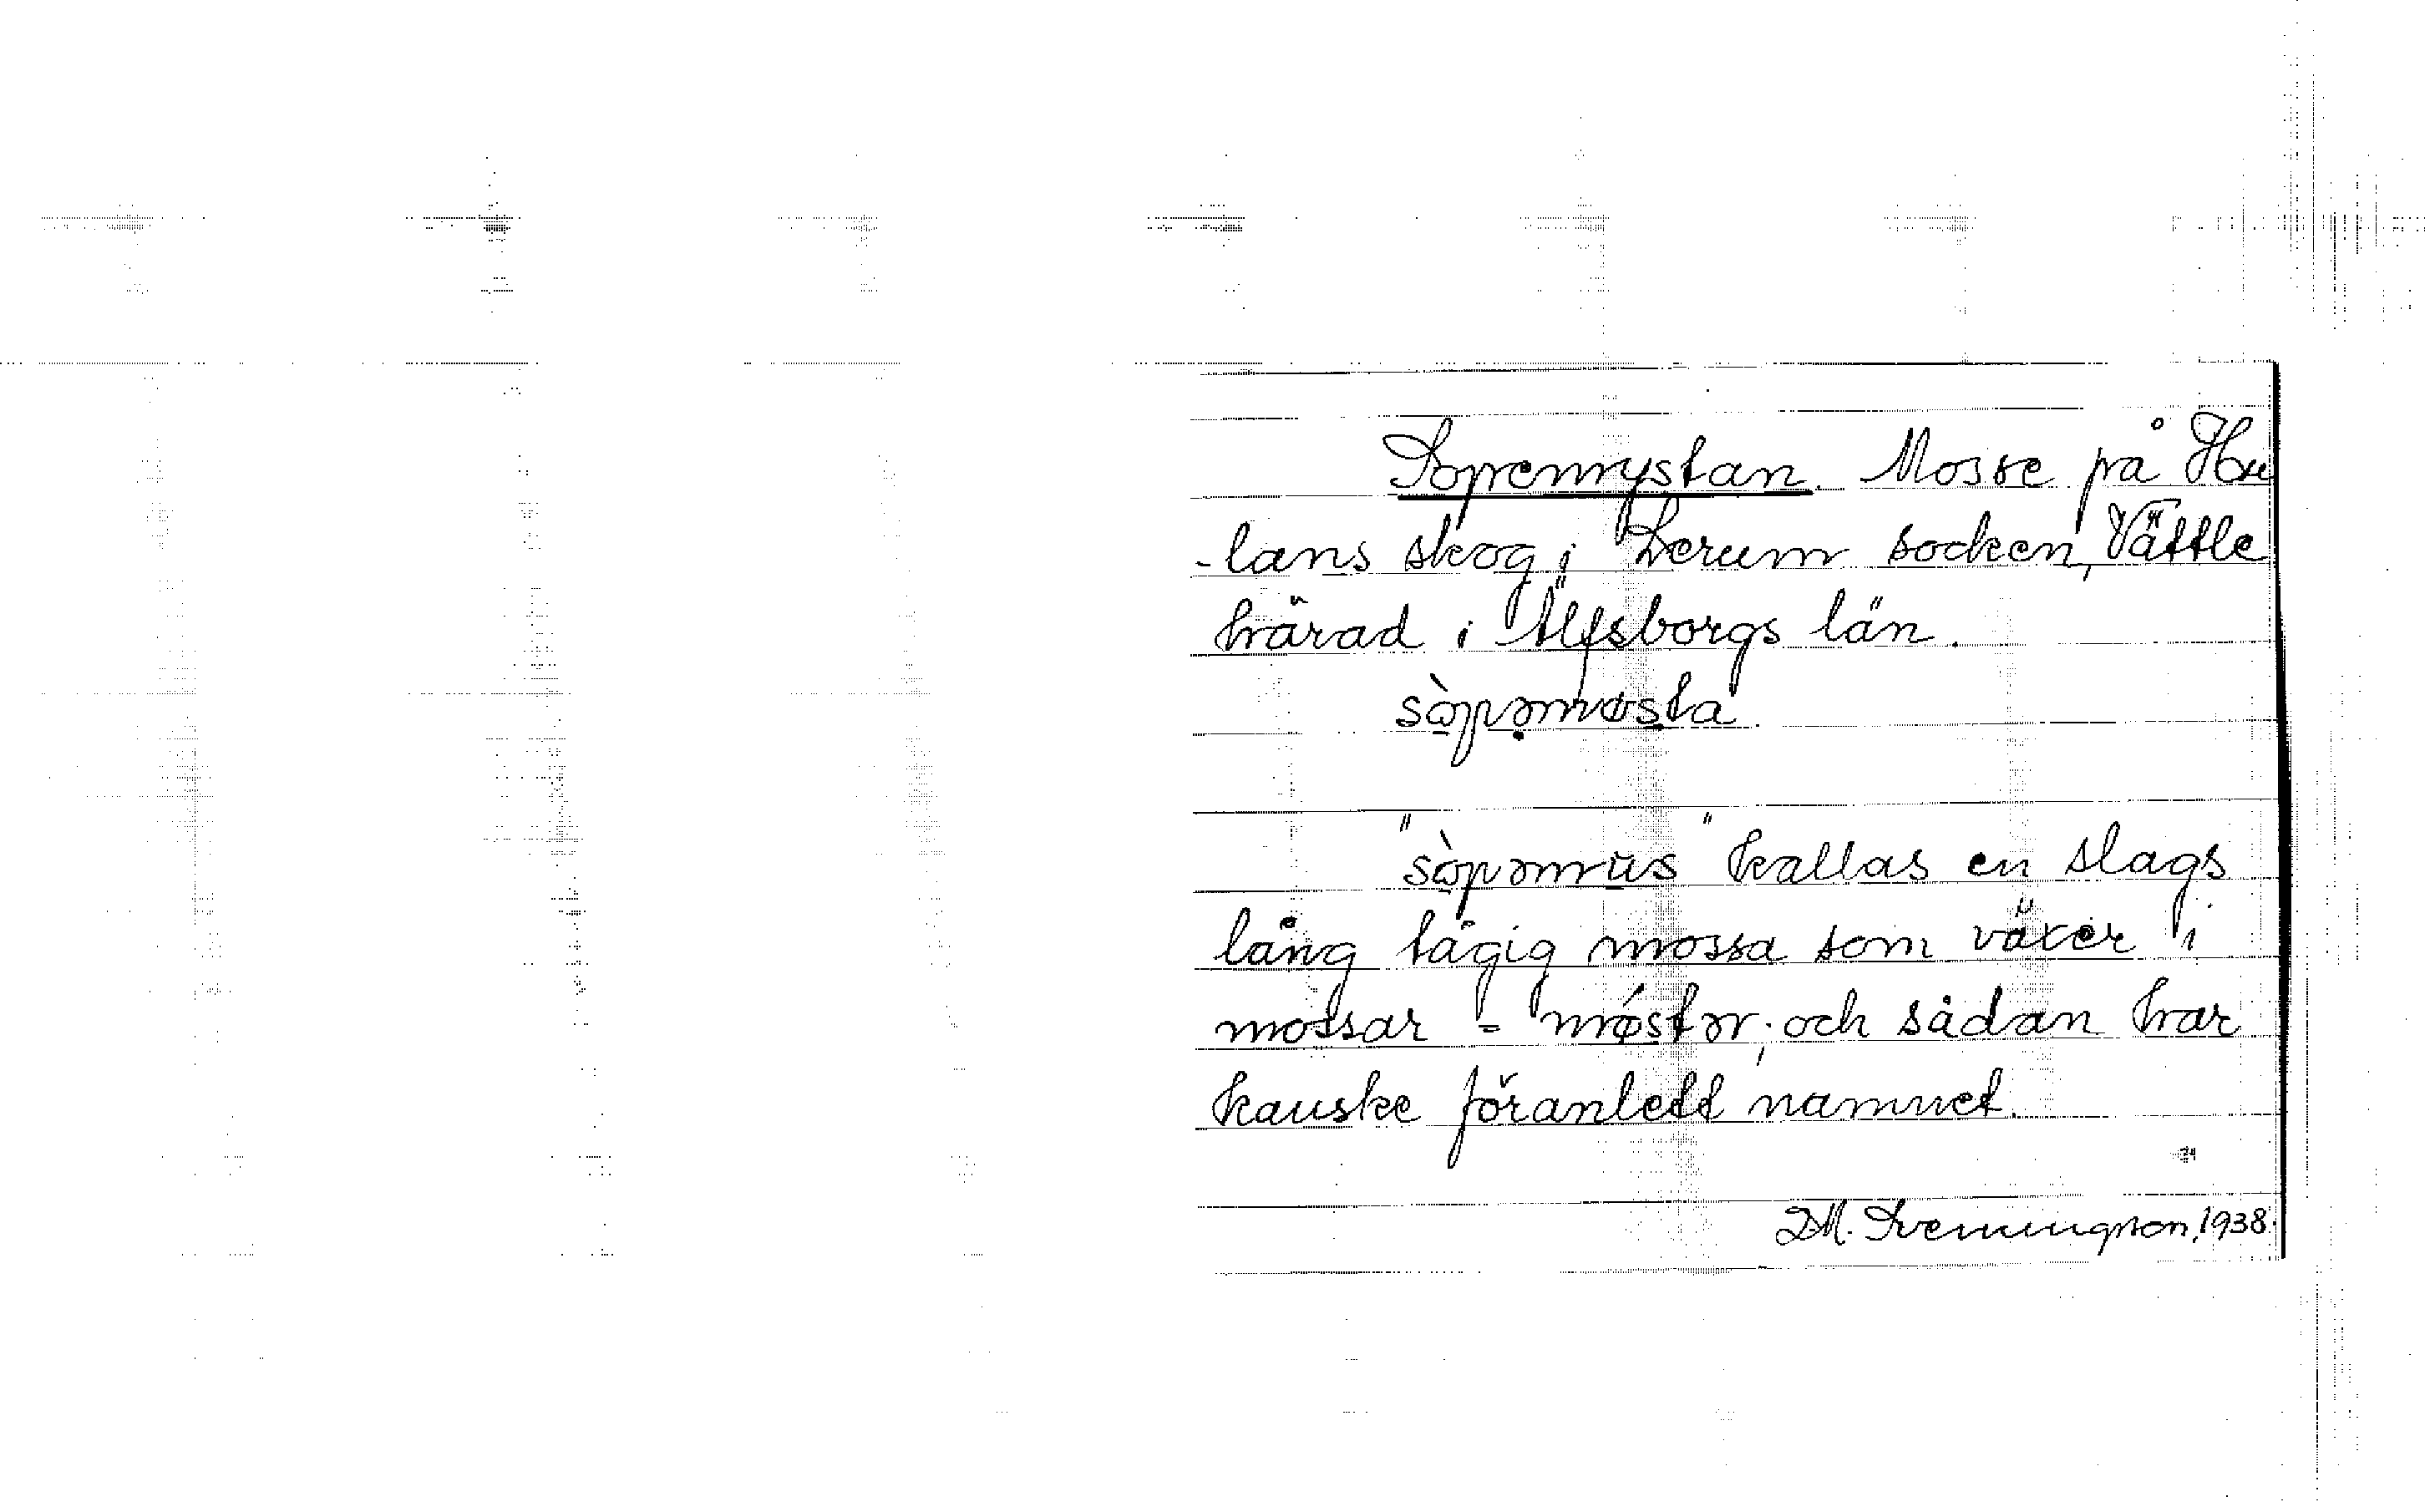 Sopemystan. Mosse på Hu
-lans skog i Lerum socken, Vättle
härad i Älfsborgs län.
sòpəmøsta
"sòpəmus" kallas en slags
lång tågig mossa som växer i
mossar = møstər, och sådan har
kanske föranlett namnet.
1938.